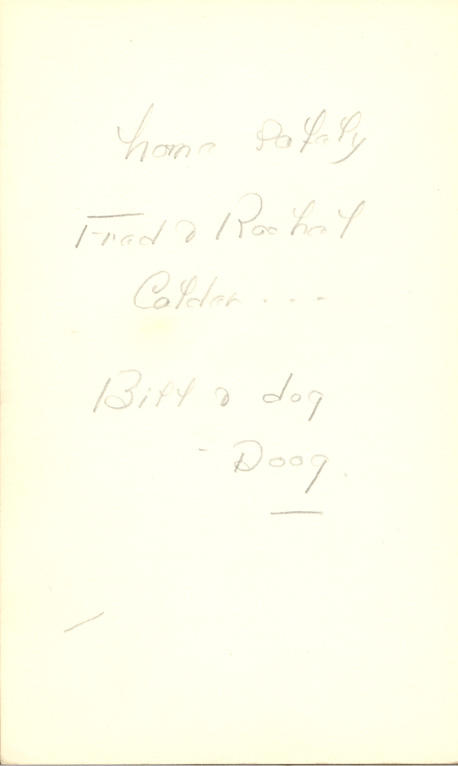 home safely
Fred & Rachel
Calder - - -
Bill & dog
- Doog.